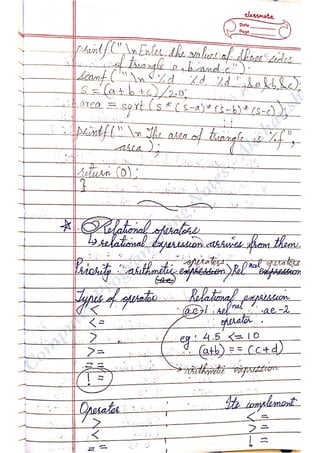 classmate
Date
Page
printf("\nEnter the values of three sides
of triangle a, b and c");
scanf("\n %d %d %d", &a, &b, &c);
s = (a+b+c)/2.0;
area = sqrt(s*(s-a)*(s-b)*(s-c));
printf("\n The area of triangle is %f",
area);
return (0);
}
Relational operators
↳ relational expression arrives from them.
Priority: arithmetic operators > Relnal operators
Types of operator Relational expression
< ae-1 relnal ae-2
<= operator.
> eg: 4.5 <= 10
>= (a+b) == (c+d)
== → arithmetic expression
!=
Operator Its complement
> <=
< >=
== !=